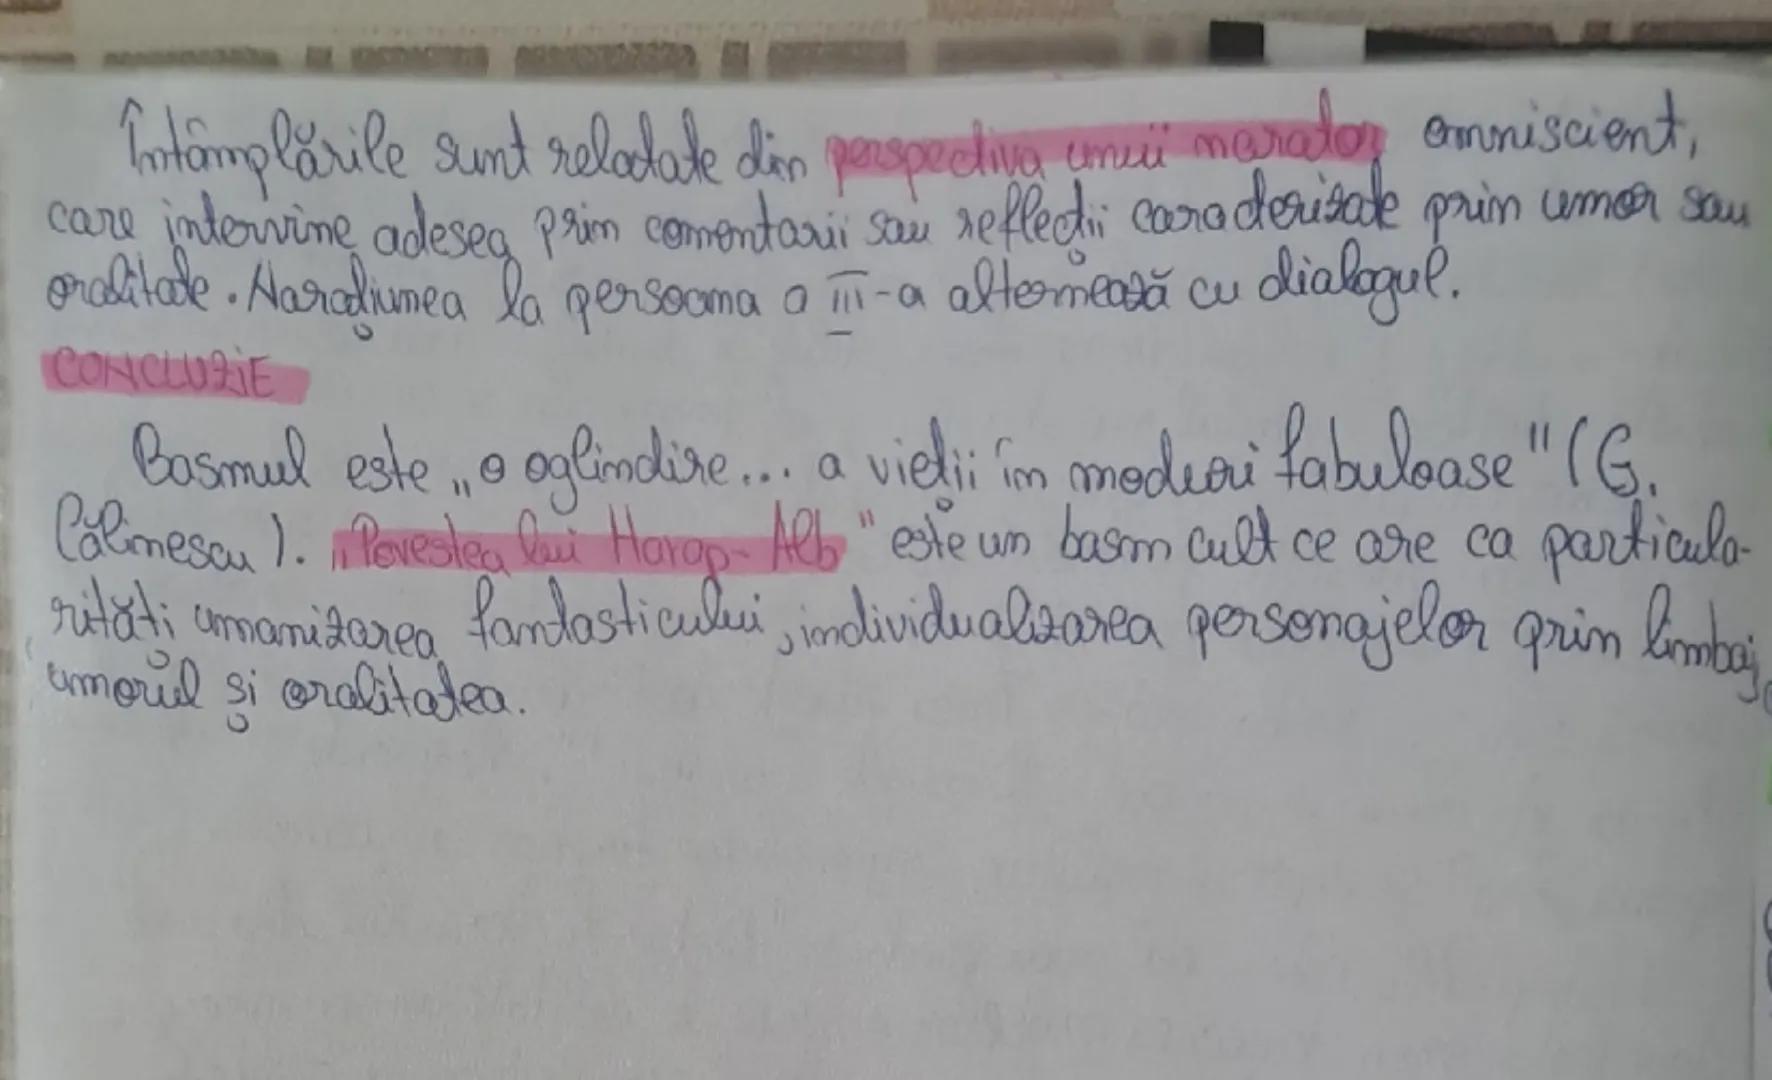 Întâmplările sunt relatate din perspectiva unui narator omniscient,
care intervine adesea prin comentarii sau reflecții caracterizate prin umor sau
oralitate. Narațiunea la persoana a III-a alternează cu dialogul.
CONCLUZIE
Basmul este „o oglindire... a vieții în moduri fabuloase" (G.
Călinescu). „Povestea lui Harap-Alb" este un basm cult ce are ca particula-
rități umanizarea fantasticului, individualizarea personajelor prin limbaj,
umorul și oralitatea.